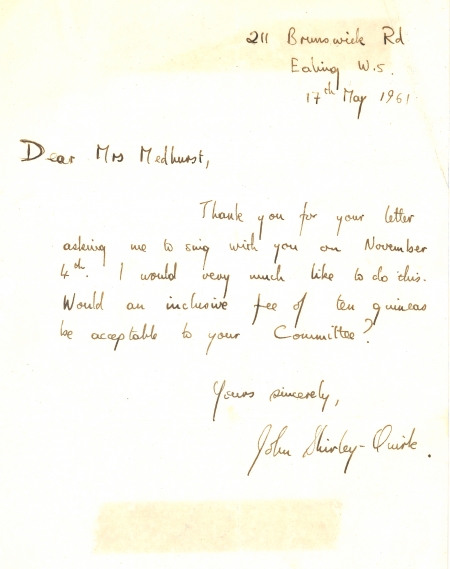 211 Brunswick Rd
Ealing W.5.
17th May 1961
Dear Mrs Medhurst,
Thank you for your letter
asking me to sing with you on November
4th. I would very much like to do this.
Would an inclusive fee of ten guineas
be acceptable to your Committee?
Yours sincerely,
John Shirley-Quirk.